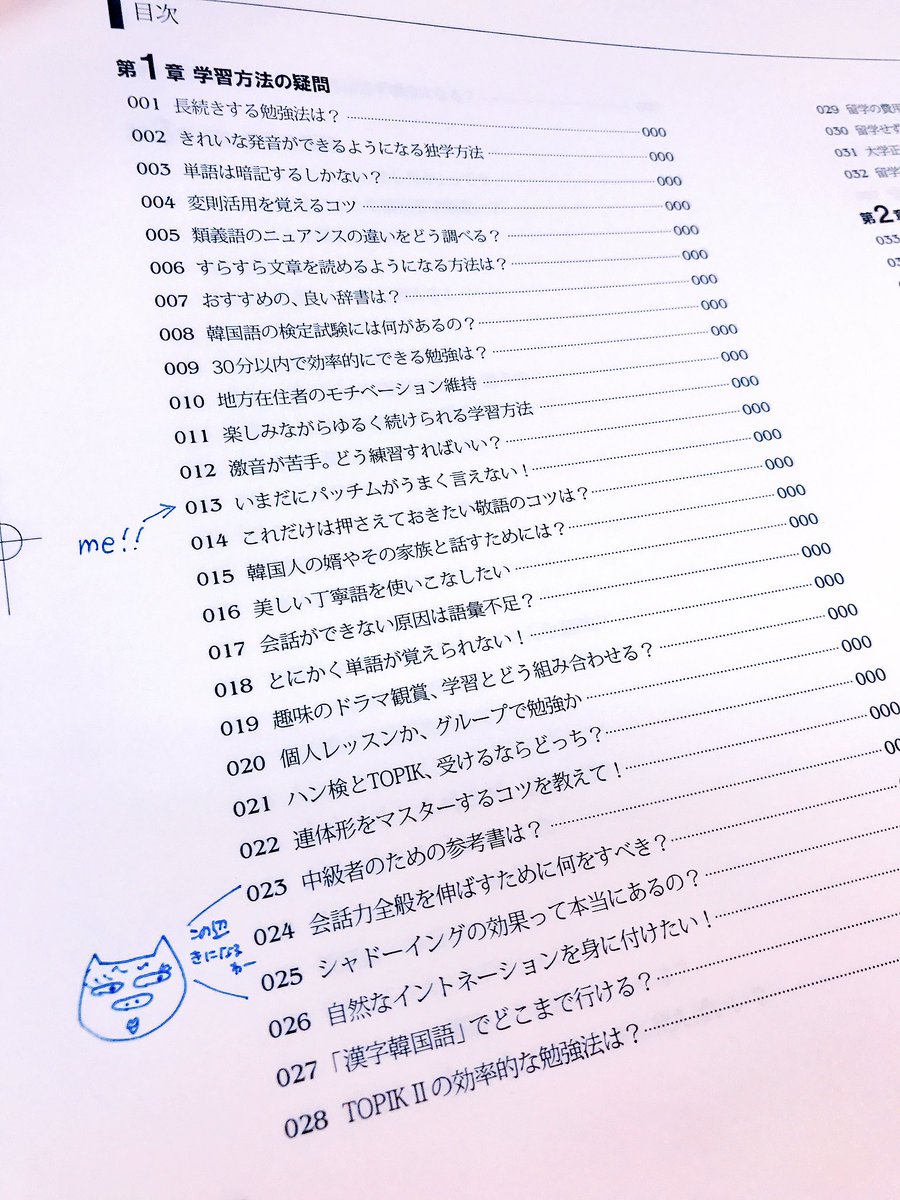 目次
第1章 学習方法の疑問
001 長続きする勉強法は? 000
002 きれいな発音ができるようになる独学方法 000
003 単語は暗記するしかない? 000
004 変則活用を覚えるコツ 000
005 類義語のニュアンスの違いをどう調べる? 000
006 すらすら文章を読めるようになる方法は? 000
007 おすすめの、良い辞書は? 000
008 韓国語の検定試験には何があるの? 000
009 30分以内で効率的にできる勉強は? 000
010 地方在住者のモチベーション維持 000
011 楽しみながらゆるく続けられる学習方法 000
012 激音が苦手。どう練習すればいい? 000
013 いまだにパッチムがうまく言えない! 000
me!!
014 これだけは押さえておきたい敬語のコツは? 000
015 韓国人の婿やその家族と話すためには? 000
016 美しい丁寧語を使いこなしたい 000
017 会話ができない原因は語彙不足? 000
018 とにかく単語が覚えられない! 000
019 趣味のドラマ観賞、学習とどう組み合わせる? 000
020 個人レッスンか、グループで勉強か 000
021 ハン検とTOPIK、受けるならどっち? 000
022 連体形をマスターするコツを教えて! 000
023 中級者のための参考書は? 00
024 会話力全般を伸ばすために何をすべき?
025 シャドーイングの効果って本当にあるの?
026 自然なイントネーションを身に付けたい!
027 「漢字韓国語」でどこまで行ける?
028 TOPIK IIの効率的な勉強法は?
この辺
きになる
わー
029 留学の費用
030 留学せず
031 大学正
032 留学
第2章
033